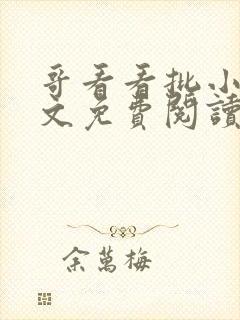 哥看看批小
文免費閱讀
余萬梅